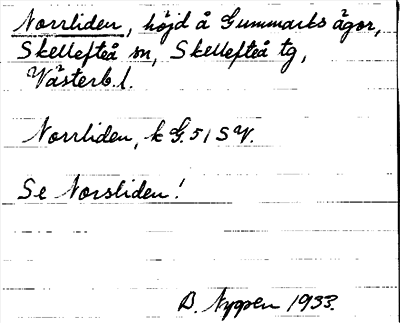 Norrliden, höjd å Gummarks ägor,
Skellefteå sn, Skellefteå tg,
Västerb. l.
Norrliden, k G. 51 S V.
Se Norsliden!
B. Nygren 1933.